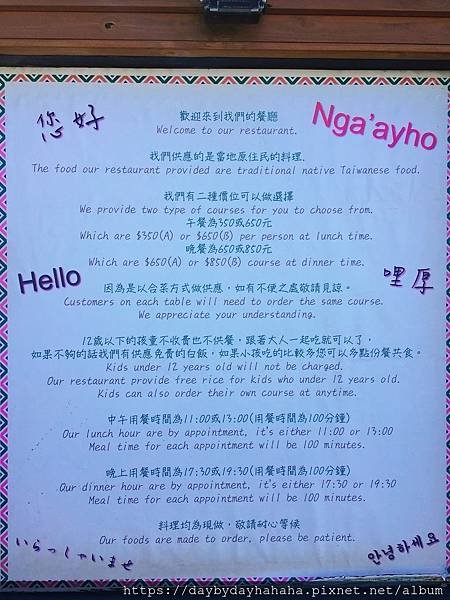 您好
歡迎來到我們的餐廳
Welcome to our restaurant.
Nga'ayho
我們供應的是當地原住民的料理.
The food our restaurant provided are traditional native Taiwanese food.
我們有二種價位可以做選擇
We provide two type of courses for you to choose from.
午餐為350或650元
Which are $350(A) or $650(B) per person at lunch time.
晚餐為650或850元
Which are $650(A) or $850(B) course at dinner time.
Hello
哩厚
因為是以合菜方式做供應，如有不便之處敬請見諒。
Customers on each table will need to order the same course.
We appreciate your understanding.
12歲以下的孩童不收費也不供餐，跟著大人一起吃就可以了，
如果不夠的話我們有供應免費的白飯，如果小孩吃的比較多您可以多點份餐共食。
Kids under 12 years old will not be charged.
Our restaurant provide free rice for kids who under 12 years old.
Kids can also order their own course at anytime.
中午用餐時間為11:00或13:00(用餐時間為100分鐘)
Our lunch hour are by appointment, it's either 11:00 or 13:00
Meal time for each appointment will be 100 minutes.
晚上用餐時間為17:30或19:30(用餐時間為100分鐘)
Our dinner hour are by appointment, it's either 17:30 or 19:30
Meal time for each appointment will be 100 minutes.
料理均為現做，敬請耐心等候
Our foods are made to order, please be patient.
いらっしゃいませ
안녕하세요
https://daybydayhahaha.pixnet.net/album